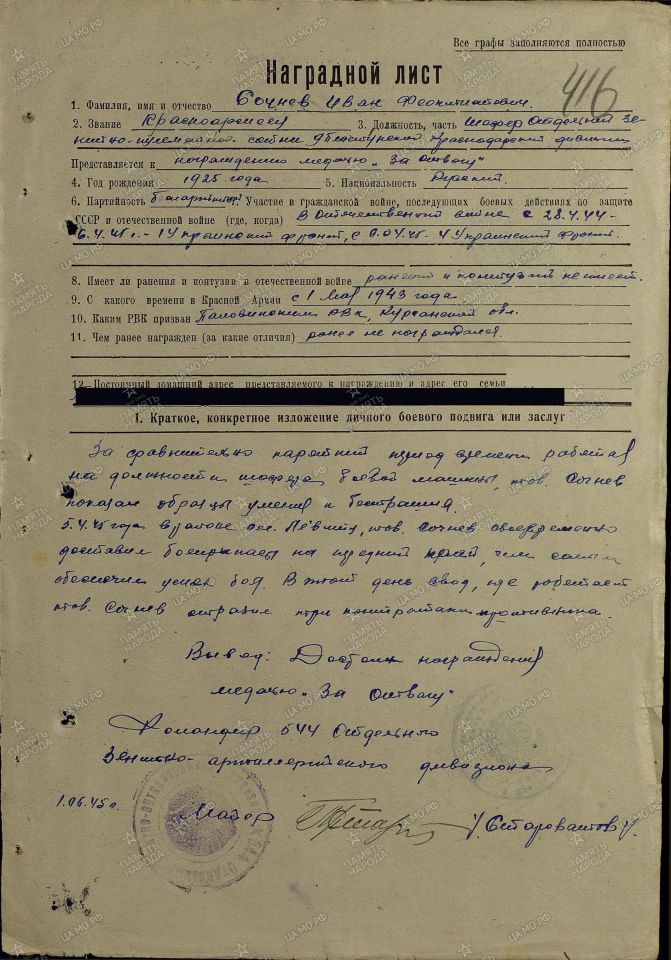 Все графы заполняются полностью
Наградной лист
416
1. Фамилия, имя и отчество Сочнев Иван
2. Звание Красноармеец 3. Должность, часть Шофер Отдельной зе-
нитно-пулеметной сотни 9 Пластунской Краснодарской дивизии
Представляется к награждению медалью „За отвагу"
4. Год рождения 1925 года 5. Национальность Русский
6. Партийность беспартийный 7. Участие в гражданской войне, последующих боевых действиях по защите
СССР и отечественной войне (где, когда) В Отечественной войне с 28.4.44-
6.4.45 г. - 1 Украинский фронт, с 9.04.45 - 4 Украинский фронт.
8. Имеет ли ранения и контузии в отечественной войне ранений и контузий не имеет.
9. С какого времени в Красной Армии с 1 Мая 1943 года
10. Каким РВК призван Половинским РВК, Курганской обл.
11. Чем ранее награжден (за какие отличия) ранее не награждался.
12. Постоянный домашний адрес представляемого к награждению и адрес его семьи
I. Краткое, конкретное изложение личного боевого подвига или заслуг
За сравнительно короткий период времени работая
на должности шофера боевой машины, тов. Сочнев
показал образцы умения и бесстрашия.
5.4.45 года в районе ос. тов. Сочнев своевременно
доставил боеприпасы на передний край, чем самым
обеспечил успех боя. В этот день взвод, где работает
тов. Сочнев отразил три контратаки противника.
Вывод: Достоин награждения
медалью „За отвагу"
Командир 544 Отдельного
Зенитно-артиллерийского дивизиона
1.06.45 г. Майор /Старовойтов/.